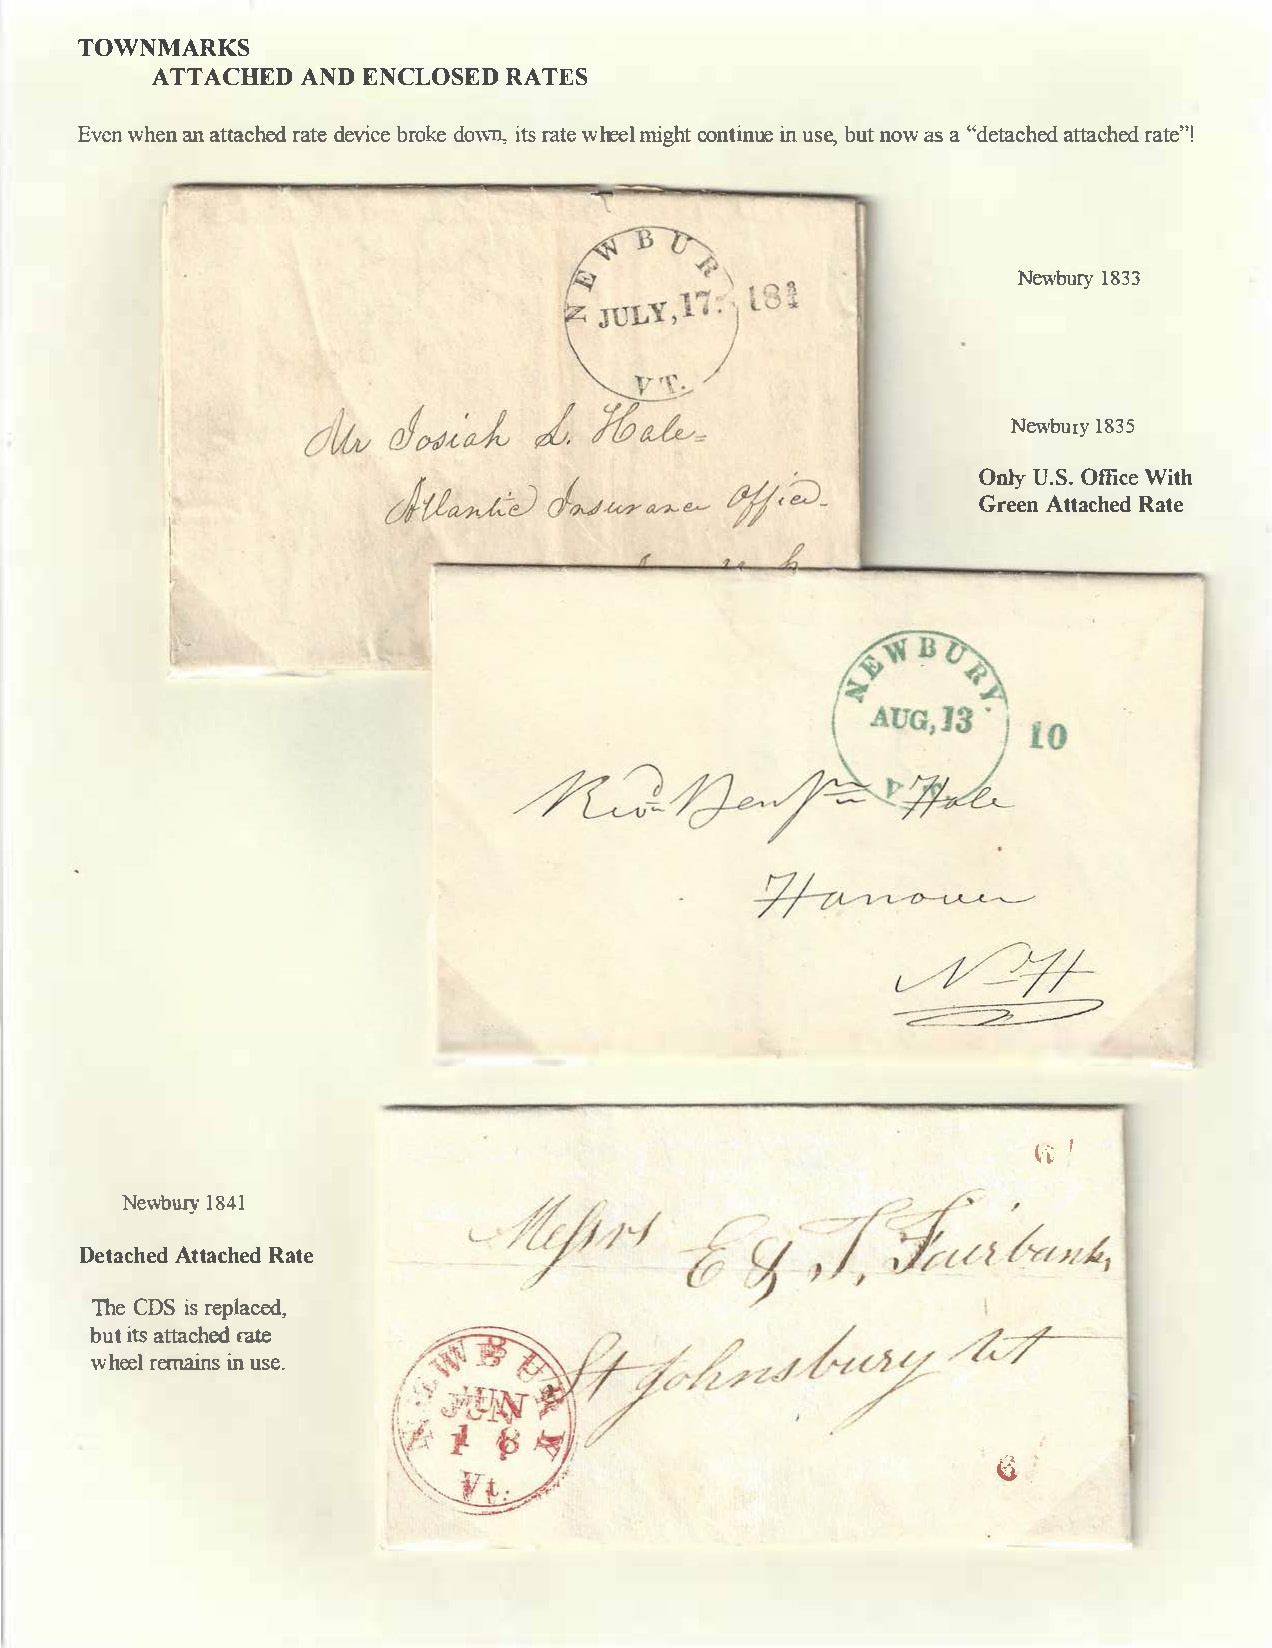 TOWNMARKS
ATTACHED AND ENCLOSED RATES
Even when an attached rate device broke down, its rate wheel might continue in use, but now as a “detached attached rate”!
NEWBURY
JULY, 17. 18¾
VT.
Mr Josiah L. Hale
Atlantic Insurance Office
Newbury 1833
Newbury 1835
Only U.S. Office With
Green Attached Rate
NEWBURY.
AUG, 13
10
Revd Benjn Hale
Hanover
N H
Newbury 1841
Detached Attached Rate
The CDS is replaced,
but its attached rate
wheel remains in use.
Messrs E & T, Fairbanks
St Johnsbury Vt
NEWBURY
JUN
18
Vt.
6